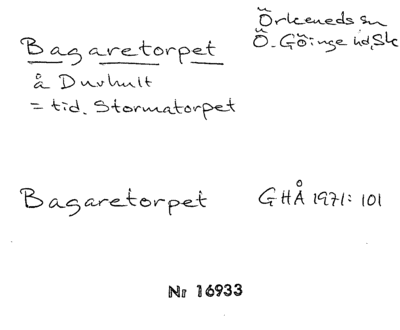 Bagaretorpet
Örkeneds sn
Ö. Göinge hd, Sk
å Duvhult
= tid. Stormatorpet
Bagaretorpet GHÅ 1971: 101
Nr 16933